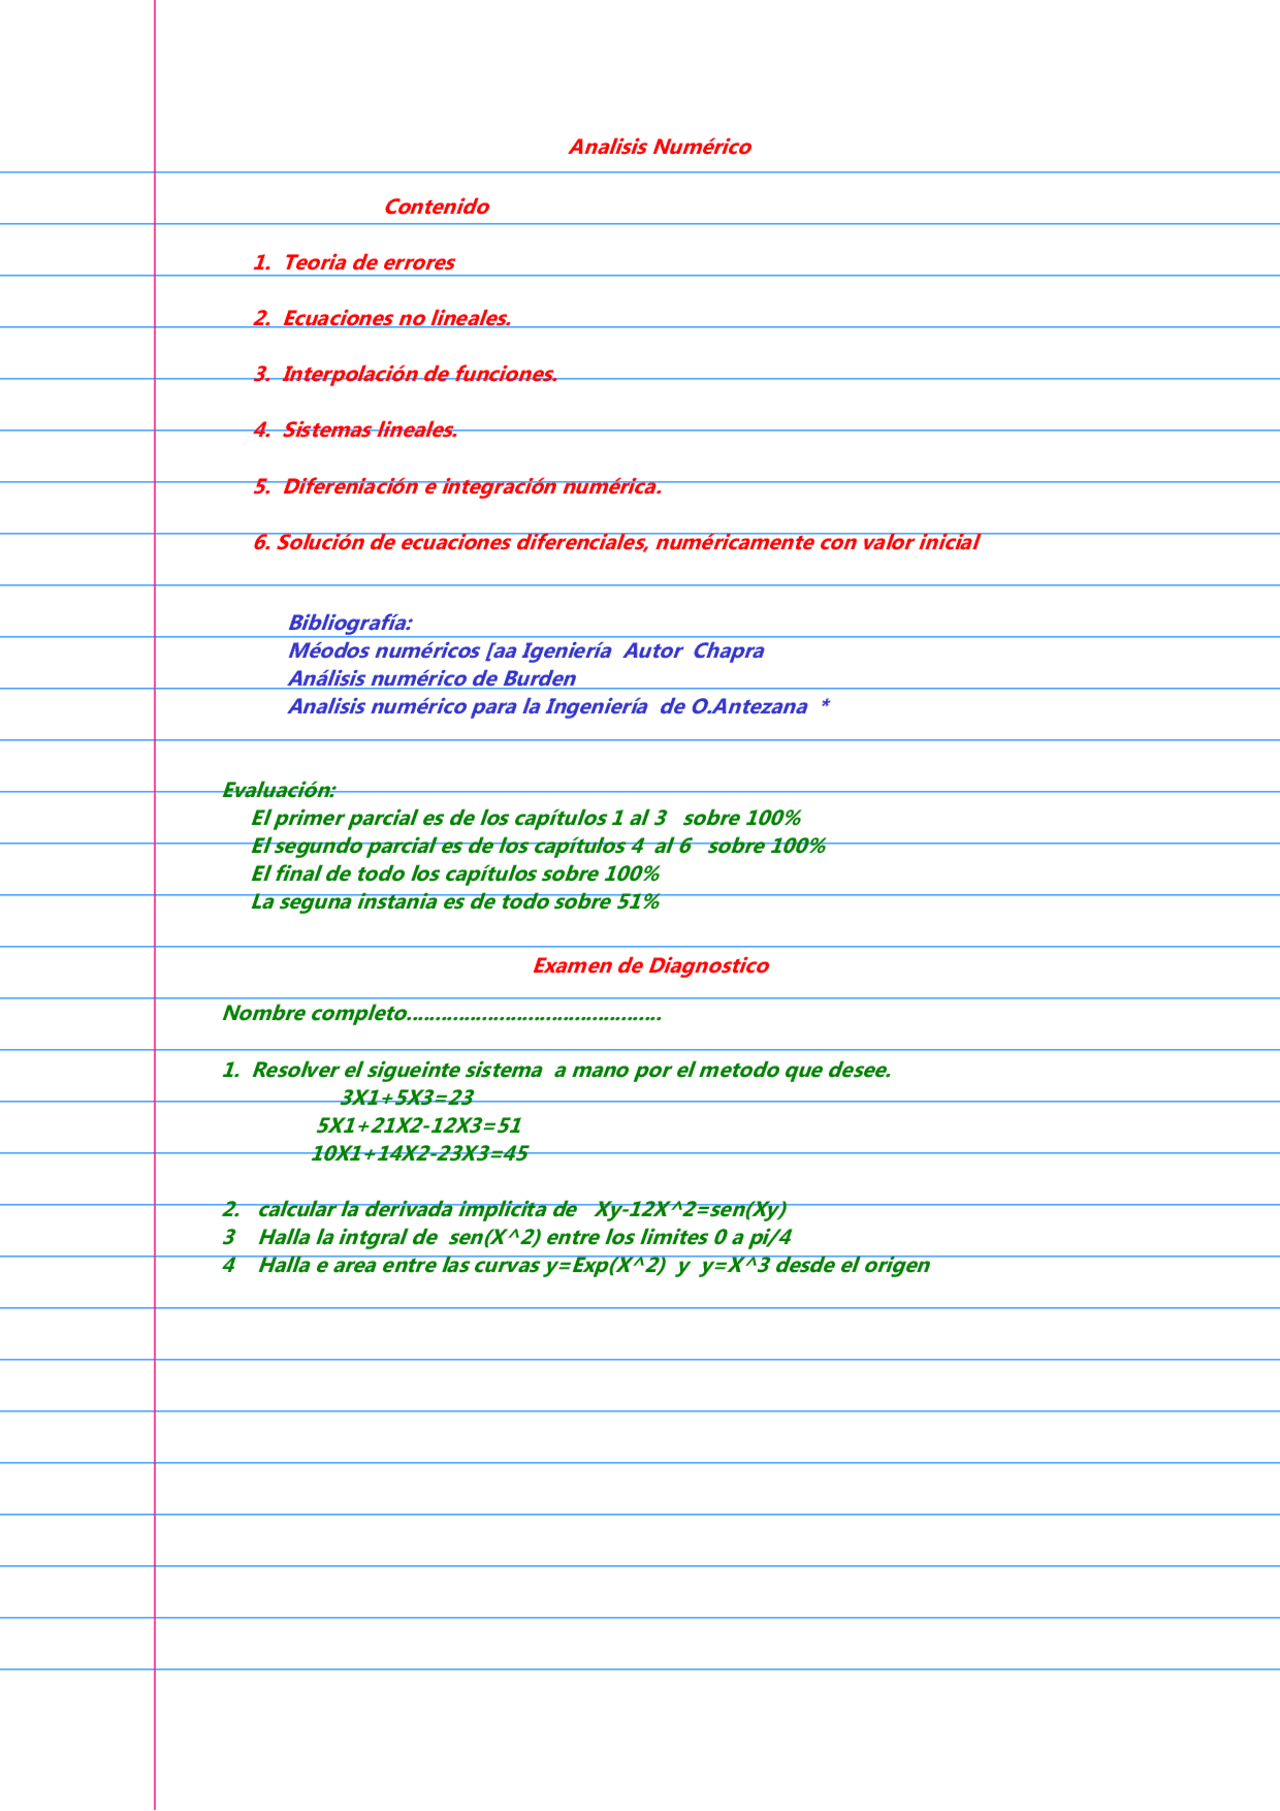 Analisis Numérico
Contenido
1. Teoria de errores
2. Ecuaciones no lineales.
3. Interpolación de funciones.
4. Sistemas lineales.
5. Difereniación e integración numérica.
6. Solución de ecuaciones diferenciales, numéricamente con valor inicial
Bibliografía:
Méodos numéricos [aa Igeniería Autor Chapra
Análisis numérico de Burden
Analisis numérico para la Ingeniería de O.Antezana *
Evaluación:
El primer parcial es de los capítulos 1 al 3 sobre 100%
El segundo parcial es de los capítulos 4 al 6 sobre 100%
El final de todo los capítulos sobre 100%
La seguna instania es de todo sobre 51%
Examen de Diagnostico
Nombre completo............................................
1. Resolver el sigueinte sistema a mano por el metodo que desee.
3X1+5X3=23
5X1+21X2-12X3=51
10X1+14X2-23X3=45
2. calcular la derivada implicita de Xy-12X^2=sen(Xy)
3 Halla la intgral de sen(X^2) entre los limites 0 a pi/4
4 Halla e area entre las curvas y=Exp(X^2) y y=X^3 desde el origen